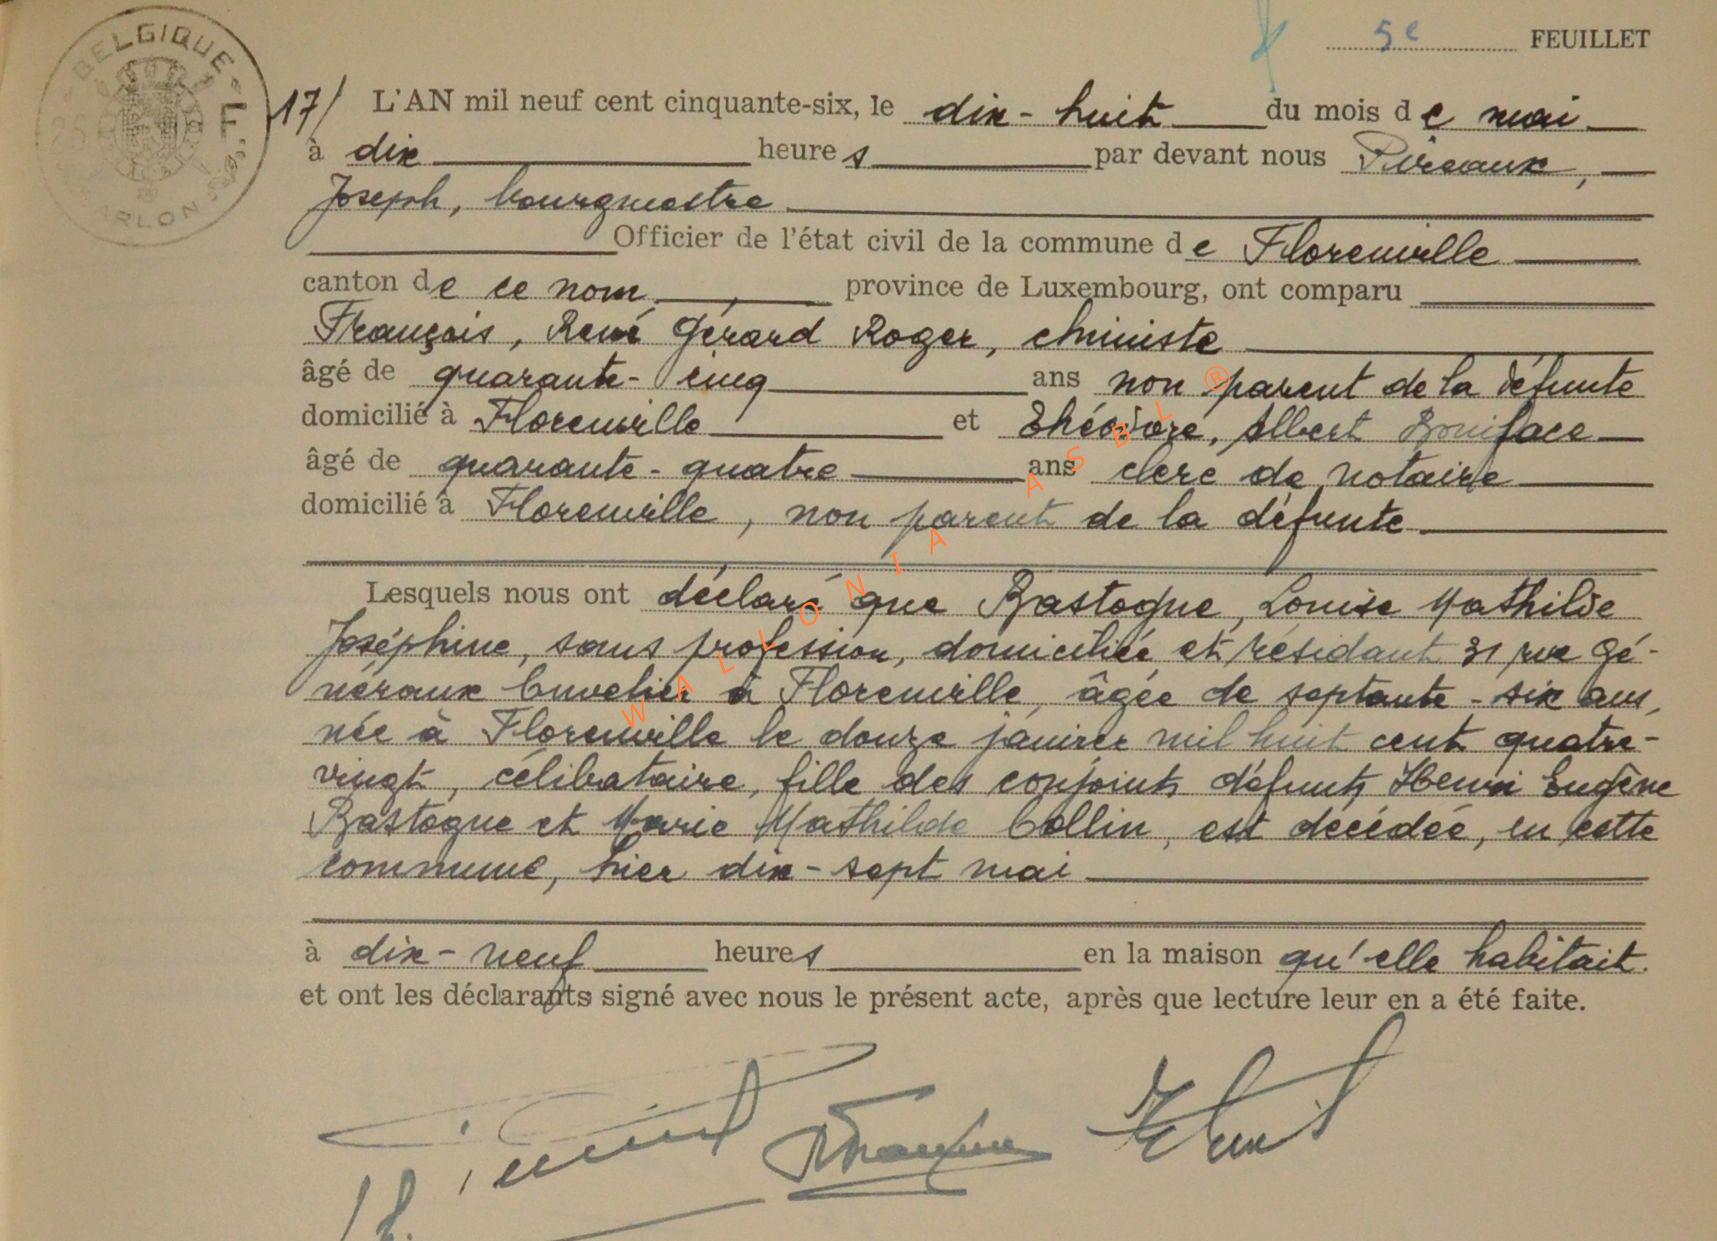 5e FEUILLET
BELGIQUE
ARLON
17/ L'AN mil neuf cent cinquante-six, le dix-huit du mois de mai
à dix heures par devant nous Pireaux,
Joseph, bourgmestre
Officier de l'état civil de la commune de Florenville
canton de ce nom province de Luxembourg, ont comparu
François, René Gérard Roger, chimiste
âgé de quarante-cinq ans non parent de la défunte
domicilié à Florenville et Théodore, Albert Boniface
âgé de quarante-quatre ans clerc de notaire
domicilié à Florenville, non parent de la défunte
Lesquels nous ont déclaré que Bastogne, Louise Mathilde
Joséphine, sans profession, domiciliée et résidant 31 rue Gé-
néraux Cuvelier à Florenville, âgée de septante-six ans,
née à Florenville le douze janvier mil huit cent quatre-
vingt, célibataire, fille des conjoints défunts Henri Eugène
Bastogne et Marie Mathilde Collin, est décédée, en cette
commune, hier dix-sept mai
à dix-neuf heures en la maison qu'elle habitait.
et ont les déclarants signé avec nous le présent acte, après que lecture leur en a été faite.
WALLONIA ASBL ®
18.